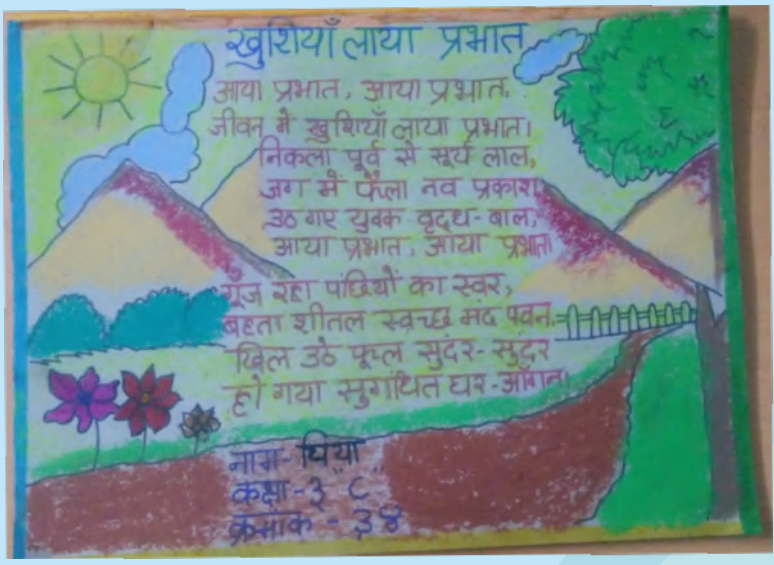 खुशियाँ लाया प्रभात
आया प्रभात, आया प्रभात,
जीवन मे खुशियाँ लाया प्रभात।
निकला पूर्व से सूर्य लाल,
जग में फैला नव प्रकाश,
उठ गए युवक वृद्ध-बाल,
आया प्रभात, आया प्रभात।
गूँज रहा पंछियों का स्वर,
बहता शीतल स्वच्छ मंद पवन,
खिल उठे फूल सुंदर-सुंदर
हो गया सुगंधित घर-आँगन।
नाम-
कक्षा-३ C
क्रमांक - ३४